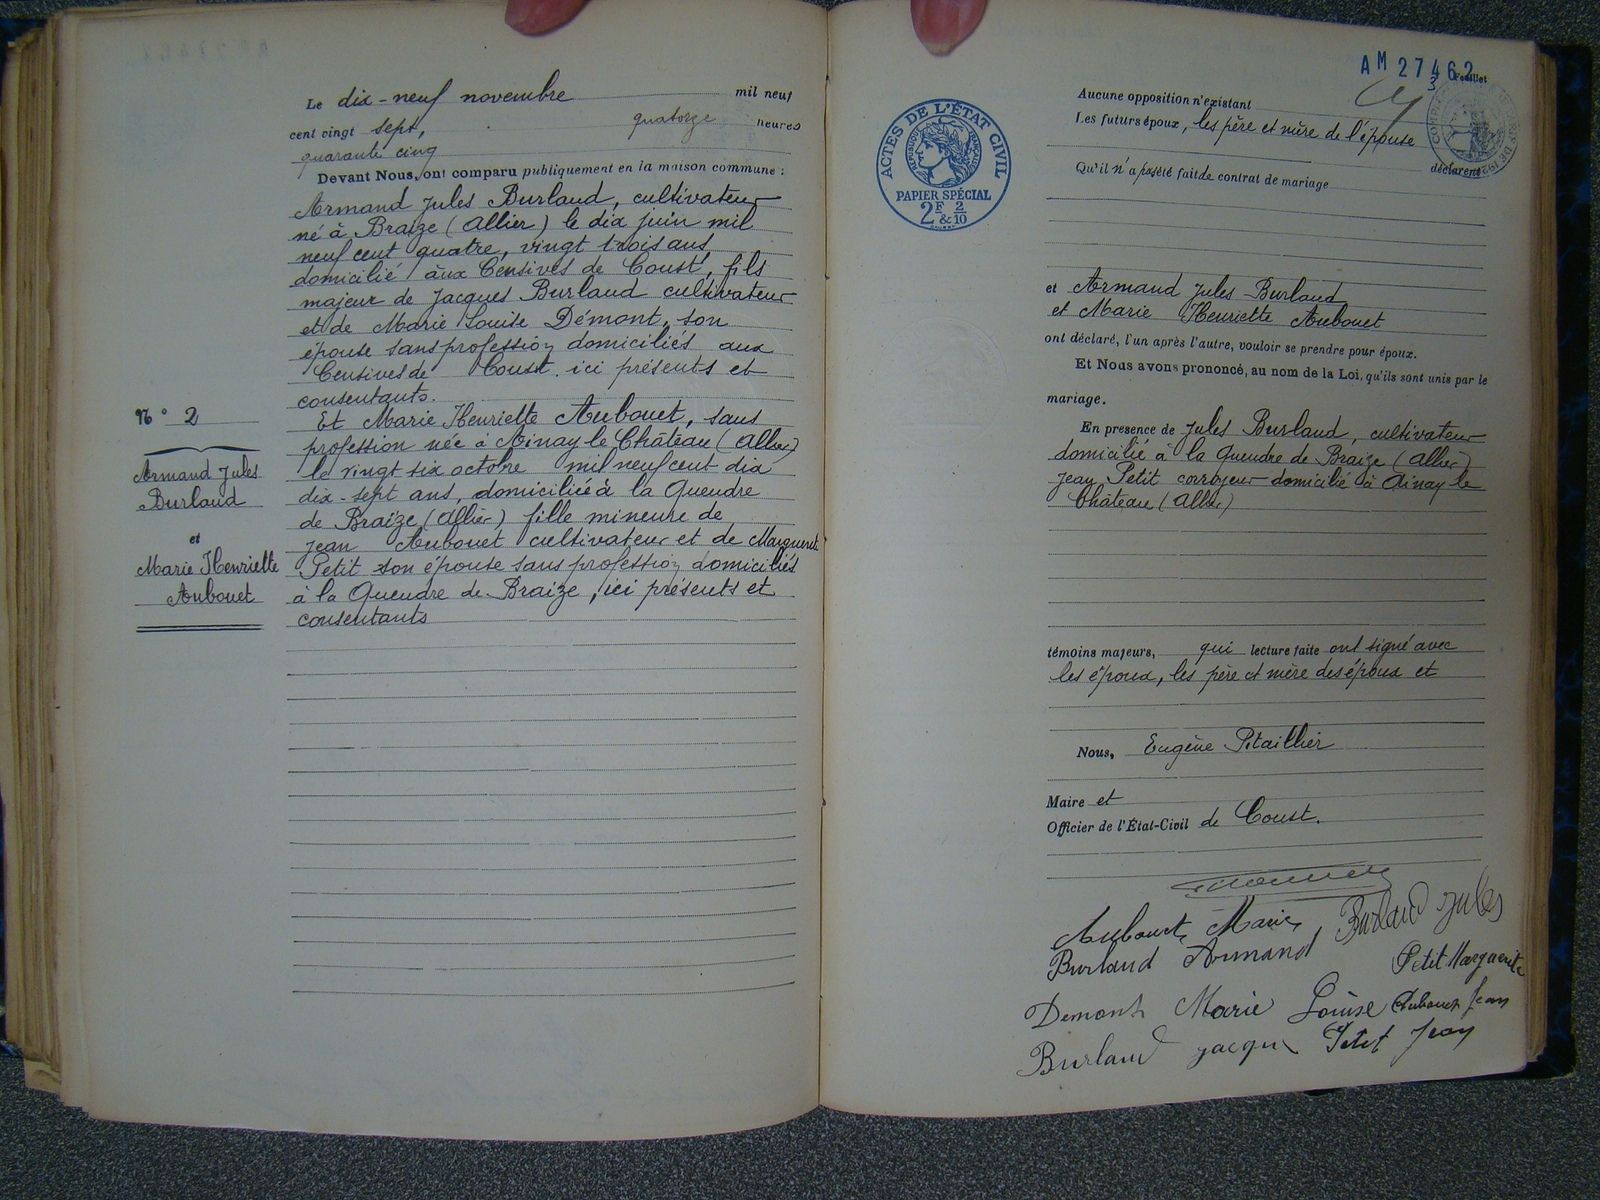 Le dix-neuf novembre mil neuf
cent vingt sept, quatorze heures
quarante cinq
Devant Nous, ont comparu publiquement en la maison commune :
Armand Jules Burlaud, cultivateur
né à Braize (Allier) le dix juin mil
neuf cent quatre, vingt trois ans,
domicilié aux Censives de Coust, fils
majeur de Jacques Burlaud cultivateur
et de Marie Louise Démont, son
épouse sans profession domiciliés aux
Censives de Coust. ici présents et
consentants.
N° 2
Armand Jules
Burlaud
et
Marie Henriette
Aubouet
Et Marie Henriette Aubouet, sans
profession née à Ainay le Château (Allier)
le vingt six octobre mil neuf cent dix
dix-sept ans, domiciliée à la Queudre
de Braize (Allier) fille mineure de
Jean Aubouet cultivateur et de Marguerite
Petit son épouse sans profession domiciliés
à la Queudre de Braize, ici présents et
consentants
AM 27462
3 Feuillet
ACTES DE L'ÉTAT CIVIL
RÉPUBLIQUE FRANÇAISE
PAPIER SPÉCIAL
2F & 2/10
Aucune opposition n'existant
Les futurs époux, les père et mère de l'épouse
déclarent
Qu'il n'a pas été fait de contrat de mariage
et Armand Jules Burlaud
et Marie Henriette Aubouet
ont déclaré, l'un après l'autre, vouloir se prendre pour époux.
Et Nous avons prononcé, au nom de la Loi, qu'ils sont unis par le
mariage.
En presence de Jules Burlaud, cultivateur
domicilié à la Queudre de Braize (Allier)
Jean Petit corroyeur domicilié à Ainay le
Château (Allier)
témoins majeurs, qui lecture faite ont signé avec
les époux, les père et mère des époux et
Nous, Eugène Pitaillier
Maire et
Officier de l'État-Civil de Coust.
Aubouet Marie Burlaud Jules
Burlaud Armand Petit Marguerite
Demont Marie Louise Aubouet Jean
Burlaud Jacque Petit Jean